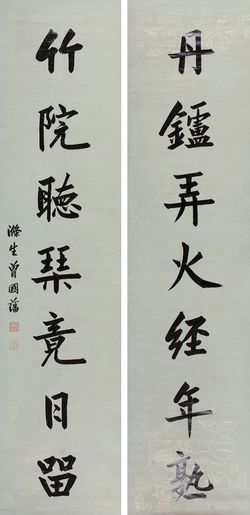 丹鑪弄火经年熟
竹院聽琴竟日留
滌生曾國藩